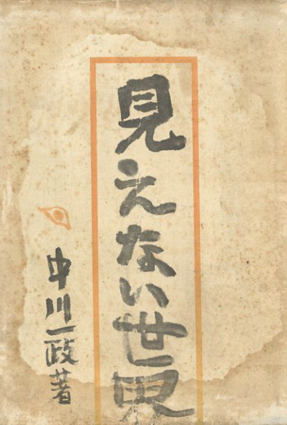 見えない世界
中川一政著